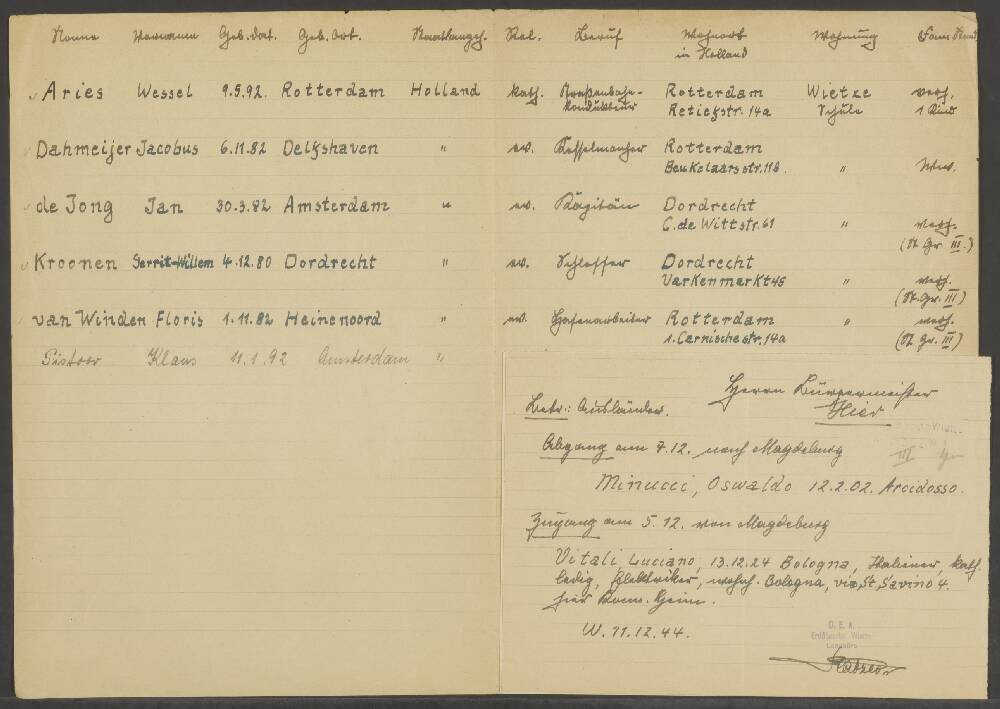 Name Vornamen Geb. Dat. Geb. Ort. Staatsangeh. Rel. Beruf Wohnort in Holland Wohnung Fam. Stand
Aries Wessel 9.5.92. Rotterdam Holland kath. Straßenbahn- Rotterdam Wietze verh.
kondukteur Retiefstr. 14a Schule 1 Kind
Dahmeijer Jacobus 6.11.82 Delfshaven " ev. Kesselmacher Rotterdam
Beukelaarsstr. 11b " Wwr.
de Jong Jan 30.3.82 Amsterdam " ev. Kapitän Dordrecht
C. de Wittstr. 61 " verh.
(St. Gr. III.)
Kroonen Gerrit-Willem 4.12.80 Dordrecht " ev. Schlosser Dordrecht
Varkenmarkt 45 " verh.
(St. Gr. III)
van Winden Floris 1.11.82 Heinenoord " ev. Hafenarbeiter Rotterdam " verh.
1. Carnissestr. 14a (St. Gr. III)
Pistoor Klaus 11.1.92 Amsterdam "
Herrn Bürgermeister
Betr.: Ausländer. Hier
Abgang am 7.12. nach Magdeburg
III
Minucci, Oswaldo 12.2.02. Arcidosso.
Zugang am 5.12. von Magdeburg
Vitali, Luciano, 13.12.24 Bologna, Italiener, kath.
ledig, Elektriker, wohnh. Bologna, via St. Savino 4.
hier Kom. Heim.
W. 11.12.44.
D. E. A.